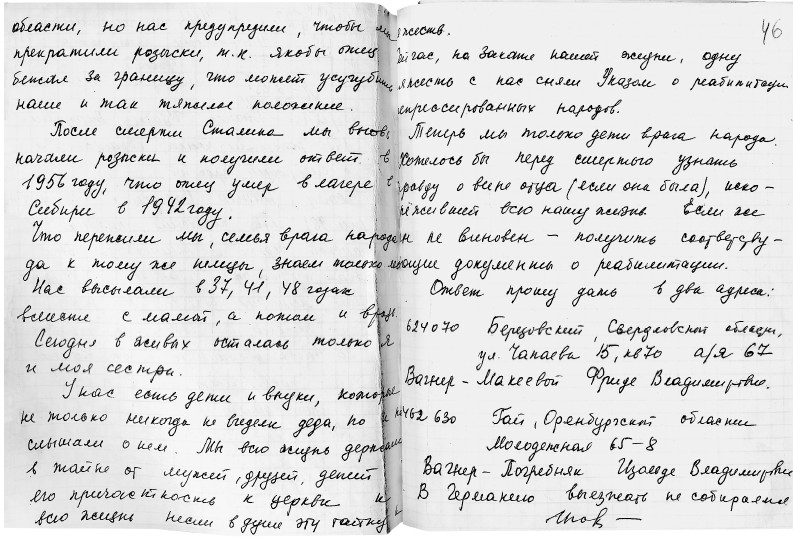 области, но нас предупредили, чтобы мы
прекратили розыски, т.к. якобы отец
бежал за границу, что может усугубить
наше и так тяжелое положение.
После смерти Сталина мы вновь
начали розыски и получили ответ в
1956 году, что отец умер в лагере в
Сибири в 1942 году.
Что пережили мы, семья врага народа
да к тому же немцы, знаем только мы
Нас высылали в 37, 41, 48 годах
вместе с мамой, а потом и врозь.
Сегодня в живых осталась только я
и моя сестра.
У нас есть дети и внуки, которые
не только никогда не видели деда, но и не
слышали о нем. Мы всю жизнь держали
в тайне от мужей, друзей, детей
его причастность к церкви и
всю жизнь несли в душе эту тайну и
46
яжесть.
ейчас, на закате нашей жизни, одну
яжесть с нас сняли Указом о реабилитации
епрессированных народов.
Теперь мы только дети врага народа.
Хотелось бы перед смертью узнать
равду о вине отца (если она была), иско-
ежившей всю нашу жизнь. Если же
н не виновен – получить соответству-
ющие документы о реабилитации.
Ответ прошу дать в два адреса:
624070 Березовский, Свердловской области,
ул. Чапаева 15, кв 70 а/я 67
Вагнер-Макеевой Фриде Владимировне.
462 630 Гай, Оренбургской области
Молодежная 65-8
Вагнер-Погребняк Изольде Владимировне
В Германию выезжать не собираемся